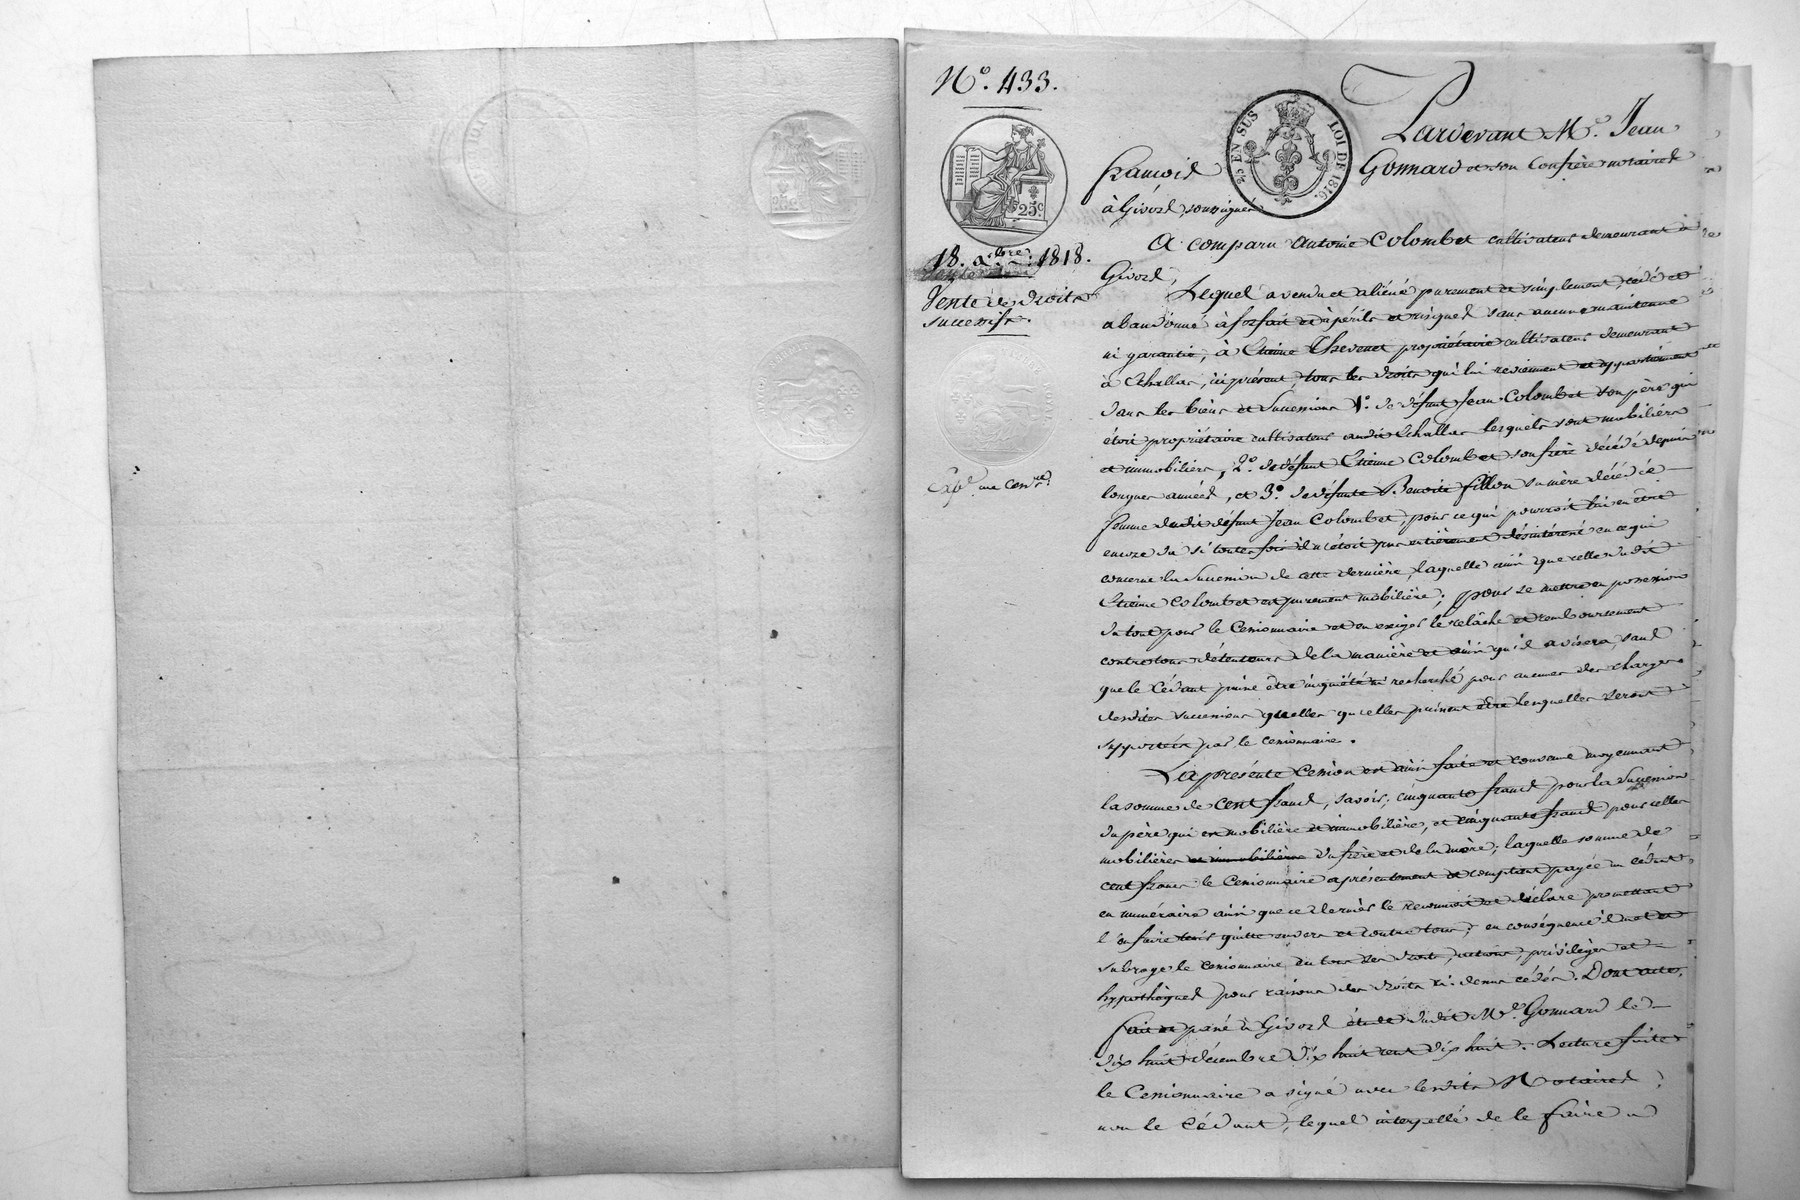 N.º 433.
25 c. EN SUS LOI DE 1816.
25.c
18. Xbre. 1818.
Vente de droits
successifs.
Pardevant Me. Jean
françois Gonnard et son Confrère notaires
à Givors, soussignés
A comparu Antoine Colombet cultivateur demeurant à
Givors,
Lequel a vendu et aliéné purement et simplement, cédé et
abandonné à forfait et à périls et risques sans aucune maintenue
ni garantie, à Etienne Thevenet propriétaire cultivateur demeurant
à Echallas, ici présent, tous les droits qui lui reviennent et appartiennent
dans les biens et Successions 1.º de défunt Jean Colombet son père qui
étoit propriétaire cultivateur audit Echallas lesquels sont mobiliers
et immobiliers, 2.º de défunt Etienne Colombet son frère décédé depuis
longues années, et 3.º de défunte Benoite fillon sa mère décédée
femme dudit défunt Jean Colombet, pour ce qui pourroit lui en être
encore du si toutes fois il n'étoit pas entièrement désintéressé en ce qui
concerne la Succession de cette dernière, laquelle ainsi que celle dudit
Etienne Colombet est purement mobilière; pour se mettre en possession
du tout pour le Cessionnaire et en exiger le relâche et remboursement
contre tous détenteurs de la manière et ainsi qu'il avisera, sans
que le Cédant puisse être inquiété ni recherché pour aucunes des charges
desdites successions quelles qu'elles puissent être lesquelles seront
supportées par le cessionnaire.
La présente Cession est ainsi faite et convenue moyennant
la somme de cent francs, savoir; cinquante francs pour la Succession
du père qui est mobilière et immobilière, et cinquante francs pour celles
mobilières et immobilières du frère et de la mère; laquelle somme de
cent francs le Cessionnaire a présentement et comptant payée au cédant
en numéraire ainsi que ce dernier le reconnoit et déclare promettant
l'en faire tenir quitte envers et contre tous; en conséquence il met et
subroge le cessionnaire en tous ses droits, actions, privilèges et
hypothèques pour raisons des droits ci-dessus cédés. Dont acte,
fait et passé à Givors étude dudit Me. Gonnard le
dix huit décembre dix huit cent dix huit. Lecture faite
le Cessionnaire a signé avec lesdits Notaires,
non le Cédant, lequel interpellé de le faire a